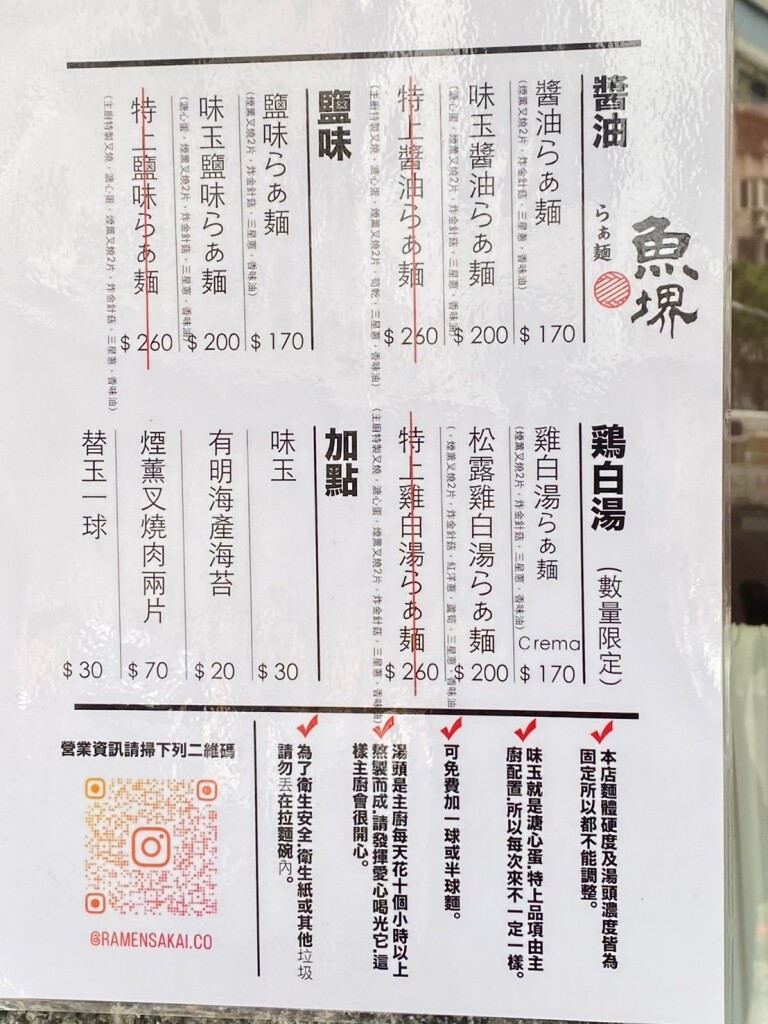 魚堺
らぁ麺
醬油
醬油らぁ麺
(煙薰叉燒2片，炸金針菇，三星蔥，香味油)
$ 170
味玉醬油らぁ麺
(溏心蛋，煙薰叉燒2片，炸金針菇，三星蔥，香味油)
$ 200
特上醬油らぁ麺
(主廚特製叉燒，溏心蛋，煙薰叉燒2片，筍乾，三星蔥，香味油)
$ 260
鹽味
鹽味らぁ麺
(煙薰叉燒2片，炸金針菇，三星蔥，香味油)
$ 170
味玉鹽味らぁ麺
(溏心蛋，煙薰叉燒2片，炸金針菇，三星蔥，香味油)
$ 200
特上鹽味らぁ麺
(主廚特製叉燒，溏心蛋，煙薰叉燒2片，炸金針菇，三星蔥，香味油)
$ 260
鶏白湯 (數量限定)
雞白湯らぁ麺 Crema
(煙薰叉燒2片，炸金針菇，三星蔥，香味油)
$ 170
松露雞白湯らぁ麺
(，煙薰叉燒2片，炸金針菇，紅洋蔥，蘆筍，三星蔥，香味油
$ 200
特上雞白湯らぁ麺
(主廚特製叉燒，溏心蛋，煙薰叉燒2片，炸金針菇，三星蔥，香味油)
$ 260
加點
味玉
$ 30
有明海產海苔
$ 20
煙薰叉燒肉兩片
$ 70
替玉一球
$ 30
本店麵體硬度及湯頭濃度皆為
固定所以都不能調整。
味玉就是溏心蛋.特上品項由主
廚配置.所以每次來不一定一樣。
可免費加一球或半球麵。
湯頭是主廚每天花十個小時以上
熬製而成.請發揮愛心喝光它.這
樣主廚會很開心。
為了衛生安全.衛生紙或其他垃圾
請勿丟在拉麵碗內。
營業資訊請掃下列二維碼
@RAMENSAKAI.CO